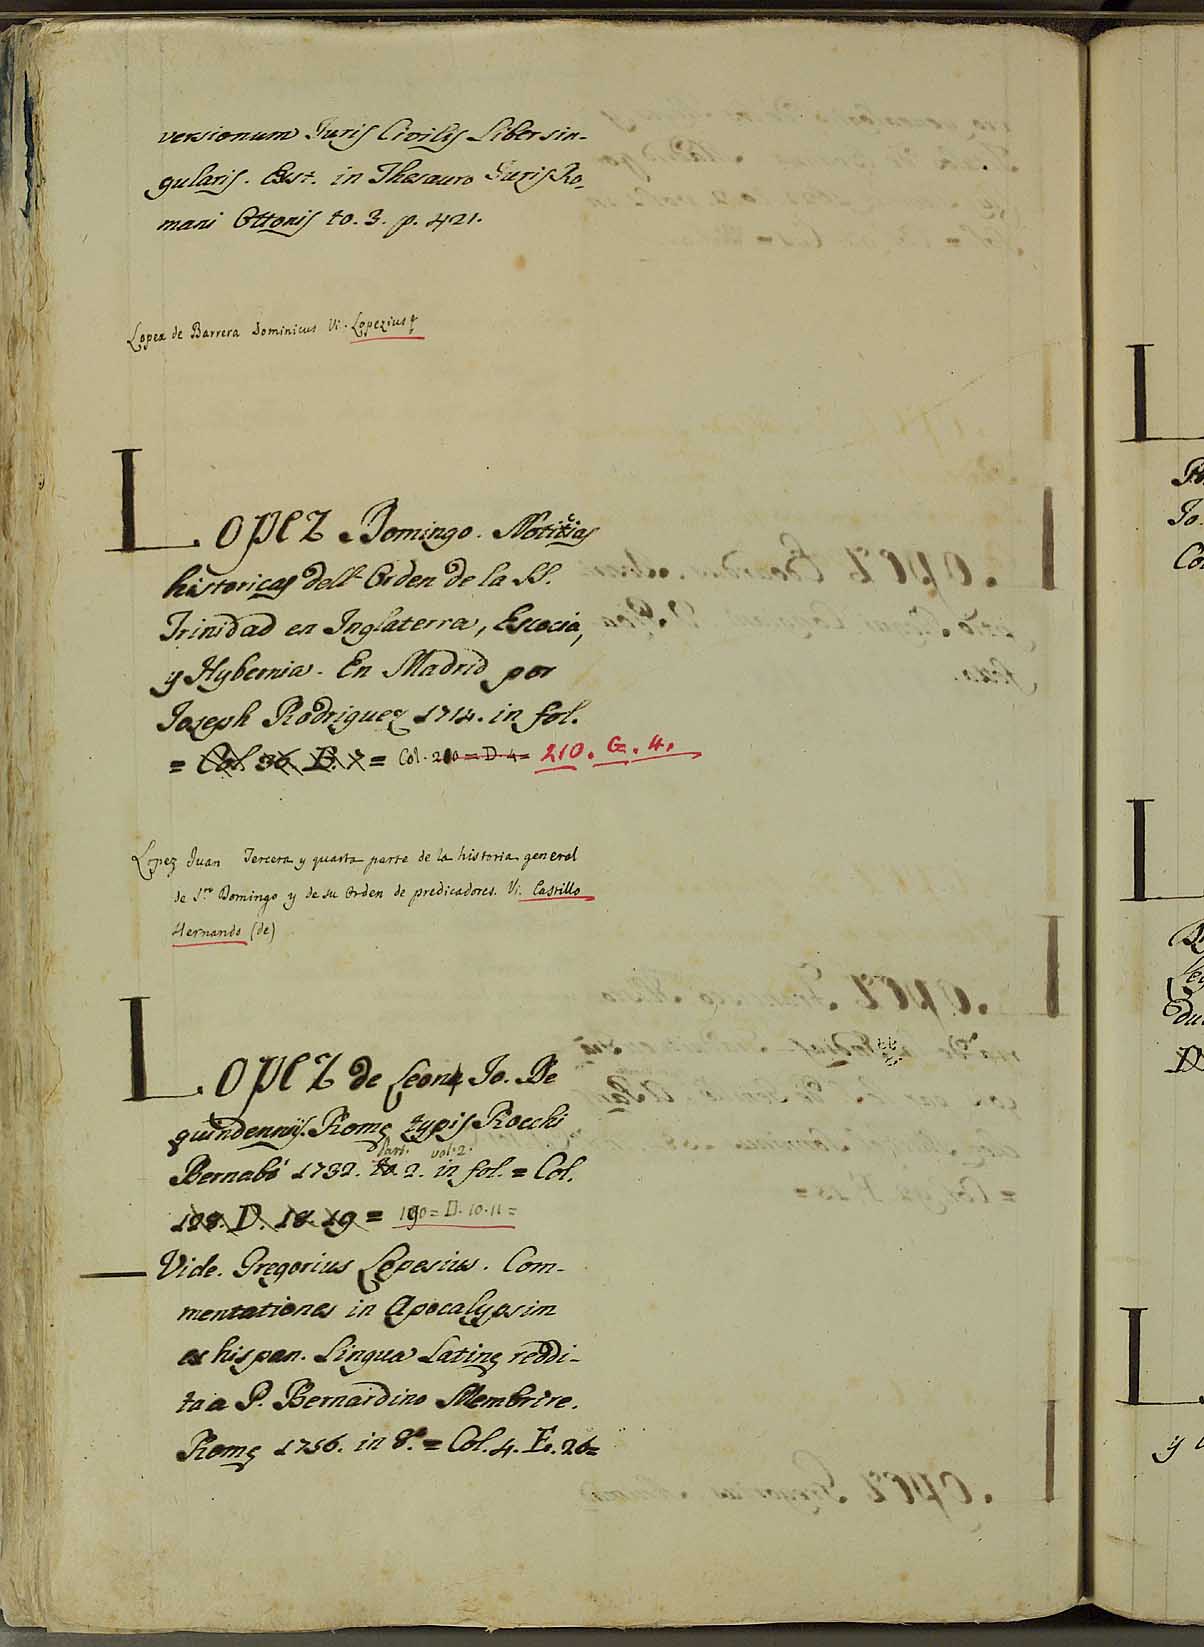 versionum Juris Civilis Liber sin-
gularis. Exst. in Thesauro Juris Ro-
mani Ottonis to. 3. p. 421.
Lopez de Barrera Dominicus Vi. Lopezius
LOPEZ Domingo. Notitias
historicas dell' Orden de la SS.
Trinidad en Inglaterra, Escocia,
y Hybernia. En Madrid por
Joseph Rodriguez 1714. in fol.
= Col. 36. D. 7 = Col. 210 = D. 4 = 210. G. 4.
Lopez Juan Tercera y quarta parte de la historia general
de Sto Domingo y de su Orden de predicadores. Vi. Castillo
Hernando (de)
LOPEZ de Leon Jo. De
quindenniis. Romę typis Rocchi
Part. vol. 2.
Bernabò 1732. to. 2. in fol. = Col.
198. D. 18. 19 = 190 = D. 10. 11 =
— Vide. Gregorius Lopesius. Com-
mentationes in Apocalypsim
ex hispan. Lingua Latinę reddi-
ta a P. Bernardino Membrive.
Romę 1756. in 8.º = Col. 4. E. 26=
L
L
L